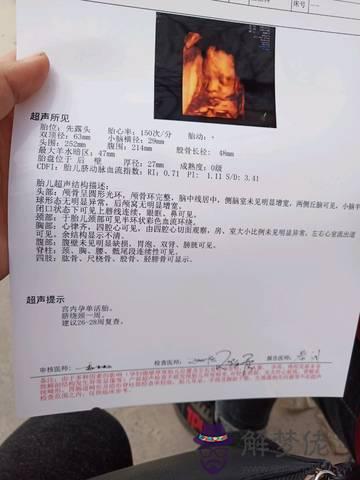 床号
超声所见
胎位：先露头 胎心率：150次/分 胎动：
双顶径：63mm 小脑横径：29mm
头围：252mm 腹围：214mm 股骨长径：48mm
最大羊水暗区：47mm
胎盘位于 后 壁 厚径：27mm 成熟度：0级
CDFI：胎儿脐动脉血流指数：RI：0.71 PI：1.11 S/D：3.41
胎儿超声结构描述：
头部：颅骨呈圆形光环，颅骨环完整，脑中线居中，侧脑室未见明显增宽，两侧丘脑可见，小脑半
球形态无明显异常，后颅窝无明显增宽。
闭口状态下可见上唇线连续，眼眶、鼻可见。
颈部：于胎儿颈部可见半环状彩色血流环绕。
胸部：心律齐，四腔心可见，由四腔心切面观察，房、室大小比例未见明显异常，左右心室流出道
可见。余结构显示不清。
腹部：腹壁未见明显缺损，胃泡、双肾、膀胱可见。
脊柱：颈、胸、腰、骶尾段连续性可见。
四肢：肱骨、尺桡骨、股骨、胫腓骨可显示。
超声提示
宫内孕单活胎。
脐绕颈一周。
建议26-28周复查。
审核医师： 检查医师： 报告医师：
解梦佬